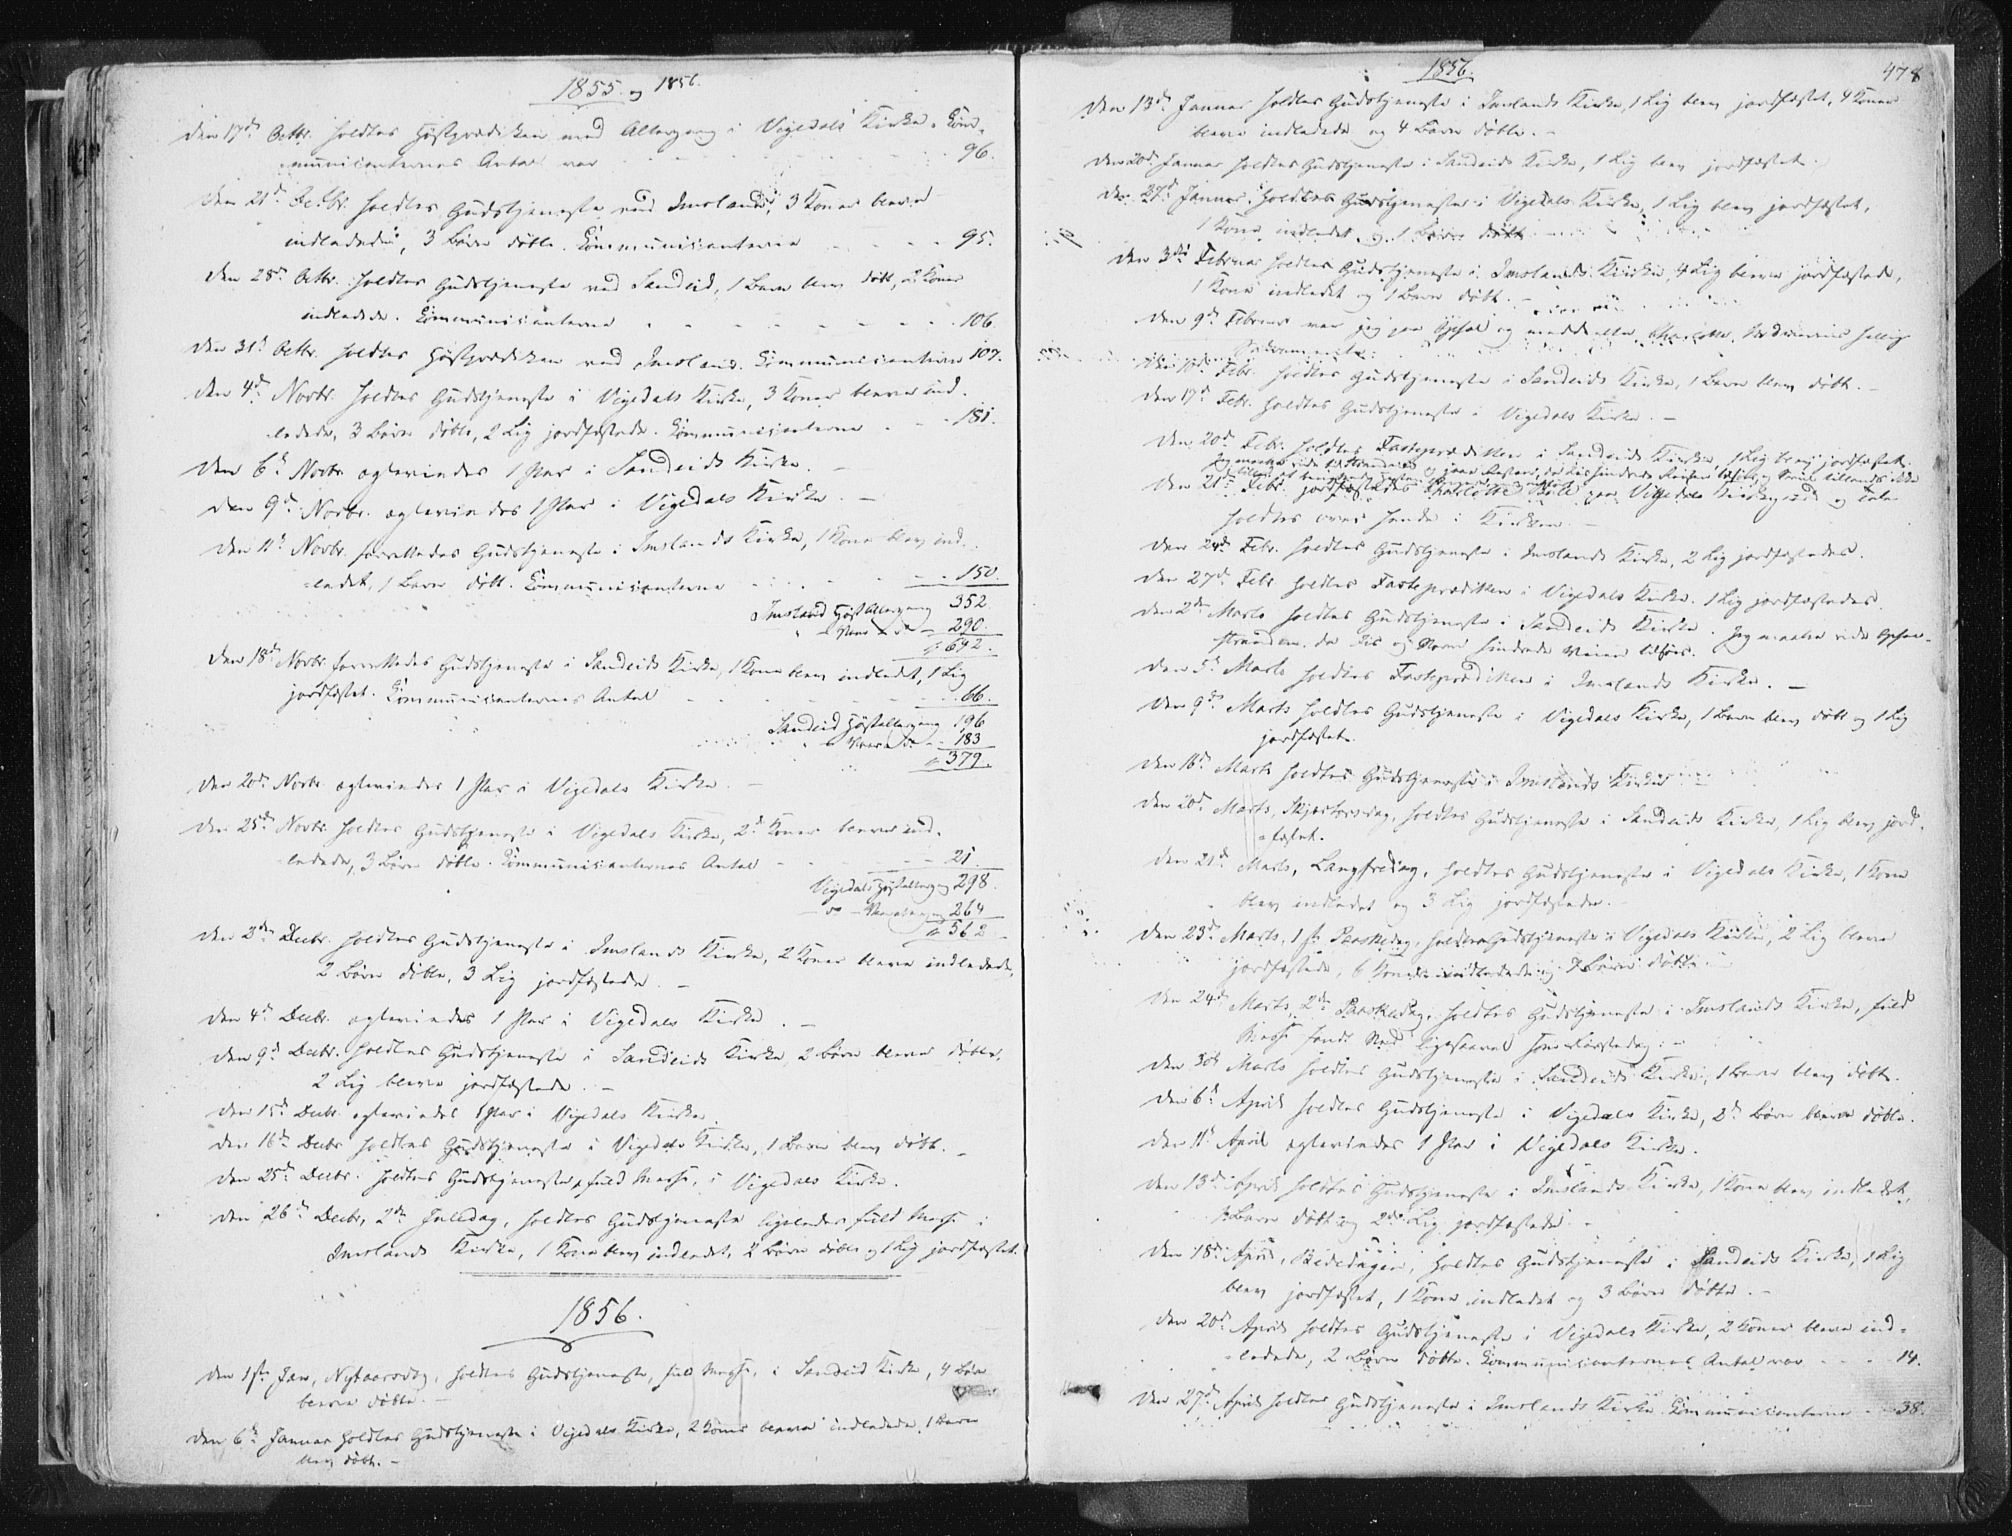 1855 og 1856.
Den 17de Octbr. holdtes Høstprædiken med Altergang i Vigedals Kirke. Com-
municanternes Antal var 96.
Den 21de Octbr. holdtes Gudstjeneste ved Imsland, 3 Koner bleve
indledede, 3 Børn døbte. Communicanterne 95.
Den 28de Octbr. holdtes Gudstjeneste ved Sandeid, 1 Barn blev døbt, 2 Koner
indledede. Communicanterne 106.
Den 31te Octbr. holdtes Høstprædiken ved Imsland. Communicanterne 107.
Den 4de Novbr. holdtes Gudstjeneste i Vigedals Kirke, 3 Koner bleve ind-
ledede, 3 Børn døbte, 2 Lig jordfæstede. Communicanterne 181.
Den 6te Novbr. egtevindes 1 Par i Sandeids Kirke. –
Den 9de Novbr. egtevindes 1 Par i Vigedals Kirke. –
Den 11te Novbr. forrettedes Gudstjeneste i Imslands Kirke, 1 Kone blev ind-
ledet, 1 Barn døbt. Communicanterne 150.
Imsland Høstaltergang 352.
" Vaar do 290.
642.
Den 18de Novbr. forrettedes Gudstjeneste i Sandeids Kirke, 1 Kone blev indledet, 1 Lig
jordfæstet. Communicanternes Antal 66.
Sandeid Høstaltergang 196
" Vaar do 183
379.
Den 20de Novbr. egtevindes 1 Par i Vigedals Kirke. –
Den 25de Novbr. holdtes Gudstjeneste i Vigedals Kirke, 2de Koner bleve ind-
ledede, 3 Børn døbte. Communicanternes Antal 21.
Vigedals Høstalterg 298.
– do – Vaaralterg 264
562
Den 2den Decbr. holdtes Gudstjeneste i Imslands Kirke, 2 Koner bleve indledede,
2 Børn døbte, 3 Lig jordfæstede. –
Den 4de Decbr. egtevindes 1 Par i Vigedals Kirke. –
Den 9de Decbr. holdtes Gudstjeneste i Sandeids Kirke, 2 Børn bleve døbte,
2 Lig bleve jordfæstede. –
Den 15de Decbr. egtevindes 1 Par i Vigedals Kirke.
Den 16de Decbr holdtes Gudstjeneste i Vigedals Kirke, 1 Barn blev døbt. –
Den 25de Decbr. holdtes Gudstjeneste, fuld Messe, i Vigedals Kirke.
Den 26de Decbr, 2den Juledag, holdtes Gudstjeneste ligeledes fuld Messe i
Imslands Kirke, 1 Kone blev indledet, 2 Børn døbte og 1 Lig jordfæstet.
1856.
Den 1ste Jan, Nytaarsdag, holdtes Gudstjeneste, fuld Messe, i Sandeid Kirke, 4 Børn
bleve døbte. –
Den 6te Januar holdtes Gudstjeneste i Vigedals Kirke, 2 Koner bleve indledede, 1 Barn
blev døbt. –
1856.
478
Den 13de Januar holdtes Gudstjeneste i Imslands Kirke, 1 Lig blev jordfæstet, 4 Koner
bleve indledede og 4 Børn døbte. –
Den 20de Januar holdtes Gudstjeneste i Sandeids Kirke, 1 Lig blev jordfæstet.
Den 27de Januar holdtes Gudstjeneste i Vigedals Kirke, 1 Lig blev jordfæstet,
1 Kone indledet og 1 Barn døbt
Den 3die Februar holdtes Gudstjeneste i Imslands Kirke, 4 Lig bleve jordfæstede,
1 Kone indledet og 1 Barn døbt. –
Den 9de Februar var jeg paa og meddelte Charlotte hellig
Sakramente.
Den 10de Febr. holdtes Gudstjeneste i Sandeids Kirke, 1 Barn blev døbt. –
Den 17de Febr. holdtes Gudstjeneste i Vigedals Kirke. –
Den 20de Febr. holdtes Fasteprædiken i Sandeids Kirke, 1 Lig blev jordfæstet.
Jeg maatte ride til
Den 21de Febr. jordfæstedes Charlotte paa Vigedals Kirkegaard og Tale
holdtes over hende i Kirken. –
Den 24de Febr. holdtes Gudstjeneste i Imslands Kirke, 2 Lig jordfæstedes.
Den 27de Febr holdtes Fasteprædiken i Vigedals Kirke. 1 Lig jordfæstedes.
Den 2den Marts holdtes Gudstjeneste i Sandeids Kirke. Jeg maatte ride
stranden, da Iis og Storm hindrede Veien tilsøes.
Den 5te Marts holdtes Fasteprædiken i Imslands Kirke. –
Den 9de Marts holdtes Gudstjeneste i Vigedals Kirke, 1 Barn blev døbt og 1 Lig
jordfæstet.
Den 16de Marts holdtes Gudstjeneste i Imslands Kirke
Den 20de Marts, Skjærtorsdag, holdtes Gudstjeneste i Sandeids Kirke, 1 Lig blev jord-
fæstet.
Den 21de Marts, Langfredag, holdtes Gudstjeneste i Vigedals Kirke, 1 Kone
blev indledet og 3 Lig jordfæstede. –
Den 23de Marts, 1ste Paaskedag, holdtes Gudstjeneste i Vigedals Kirke, 2 Lig bleve
jordfæstede, 6 Koner indledede og 7 Børn døbte.
Den 24de Marts, 2den Paaskedag, holdtes Gudstjeneste i Imslands Kirke, fuld
Messe fandt Sted ligesaavel som første dag. –
Den 30te Marts holdtes Gudstjeneste i Sandeids Kirke, 1 Barn blev døbt.
Den 6te April holdtes Gudstjeneste i Vigedals Kirke, 2de Børn bleve døbte.
Den 11te April egtevindes 1 Par i Vigedals Kirke.
Den 13de April holdtes Gudstjeneste i Imslands Kirke, 1 Kone blev indledet,
1 Barn døbt og 2de Lig jordfæstede. –
Den 18de April, Bededagen, holdtes Gudstjeneste i Sandeids Kirke, 1 Lig
blev jordfæstet, 1 Kone indledet og 3 Børn døbte. –
Den 20de April holdtes Gudstjeneste i Vigedals Kirke, 2 Koner bleve ind-
ledede, 2 Børn døbte. Communicanternes Antal var 14.
Den 27de April holdtes Gudstjeneste i Imslands Kirke. Communicanterne 38.